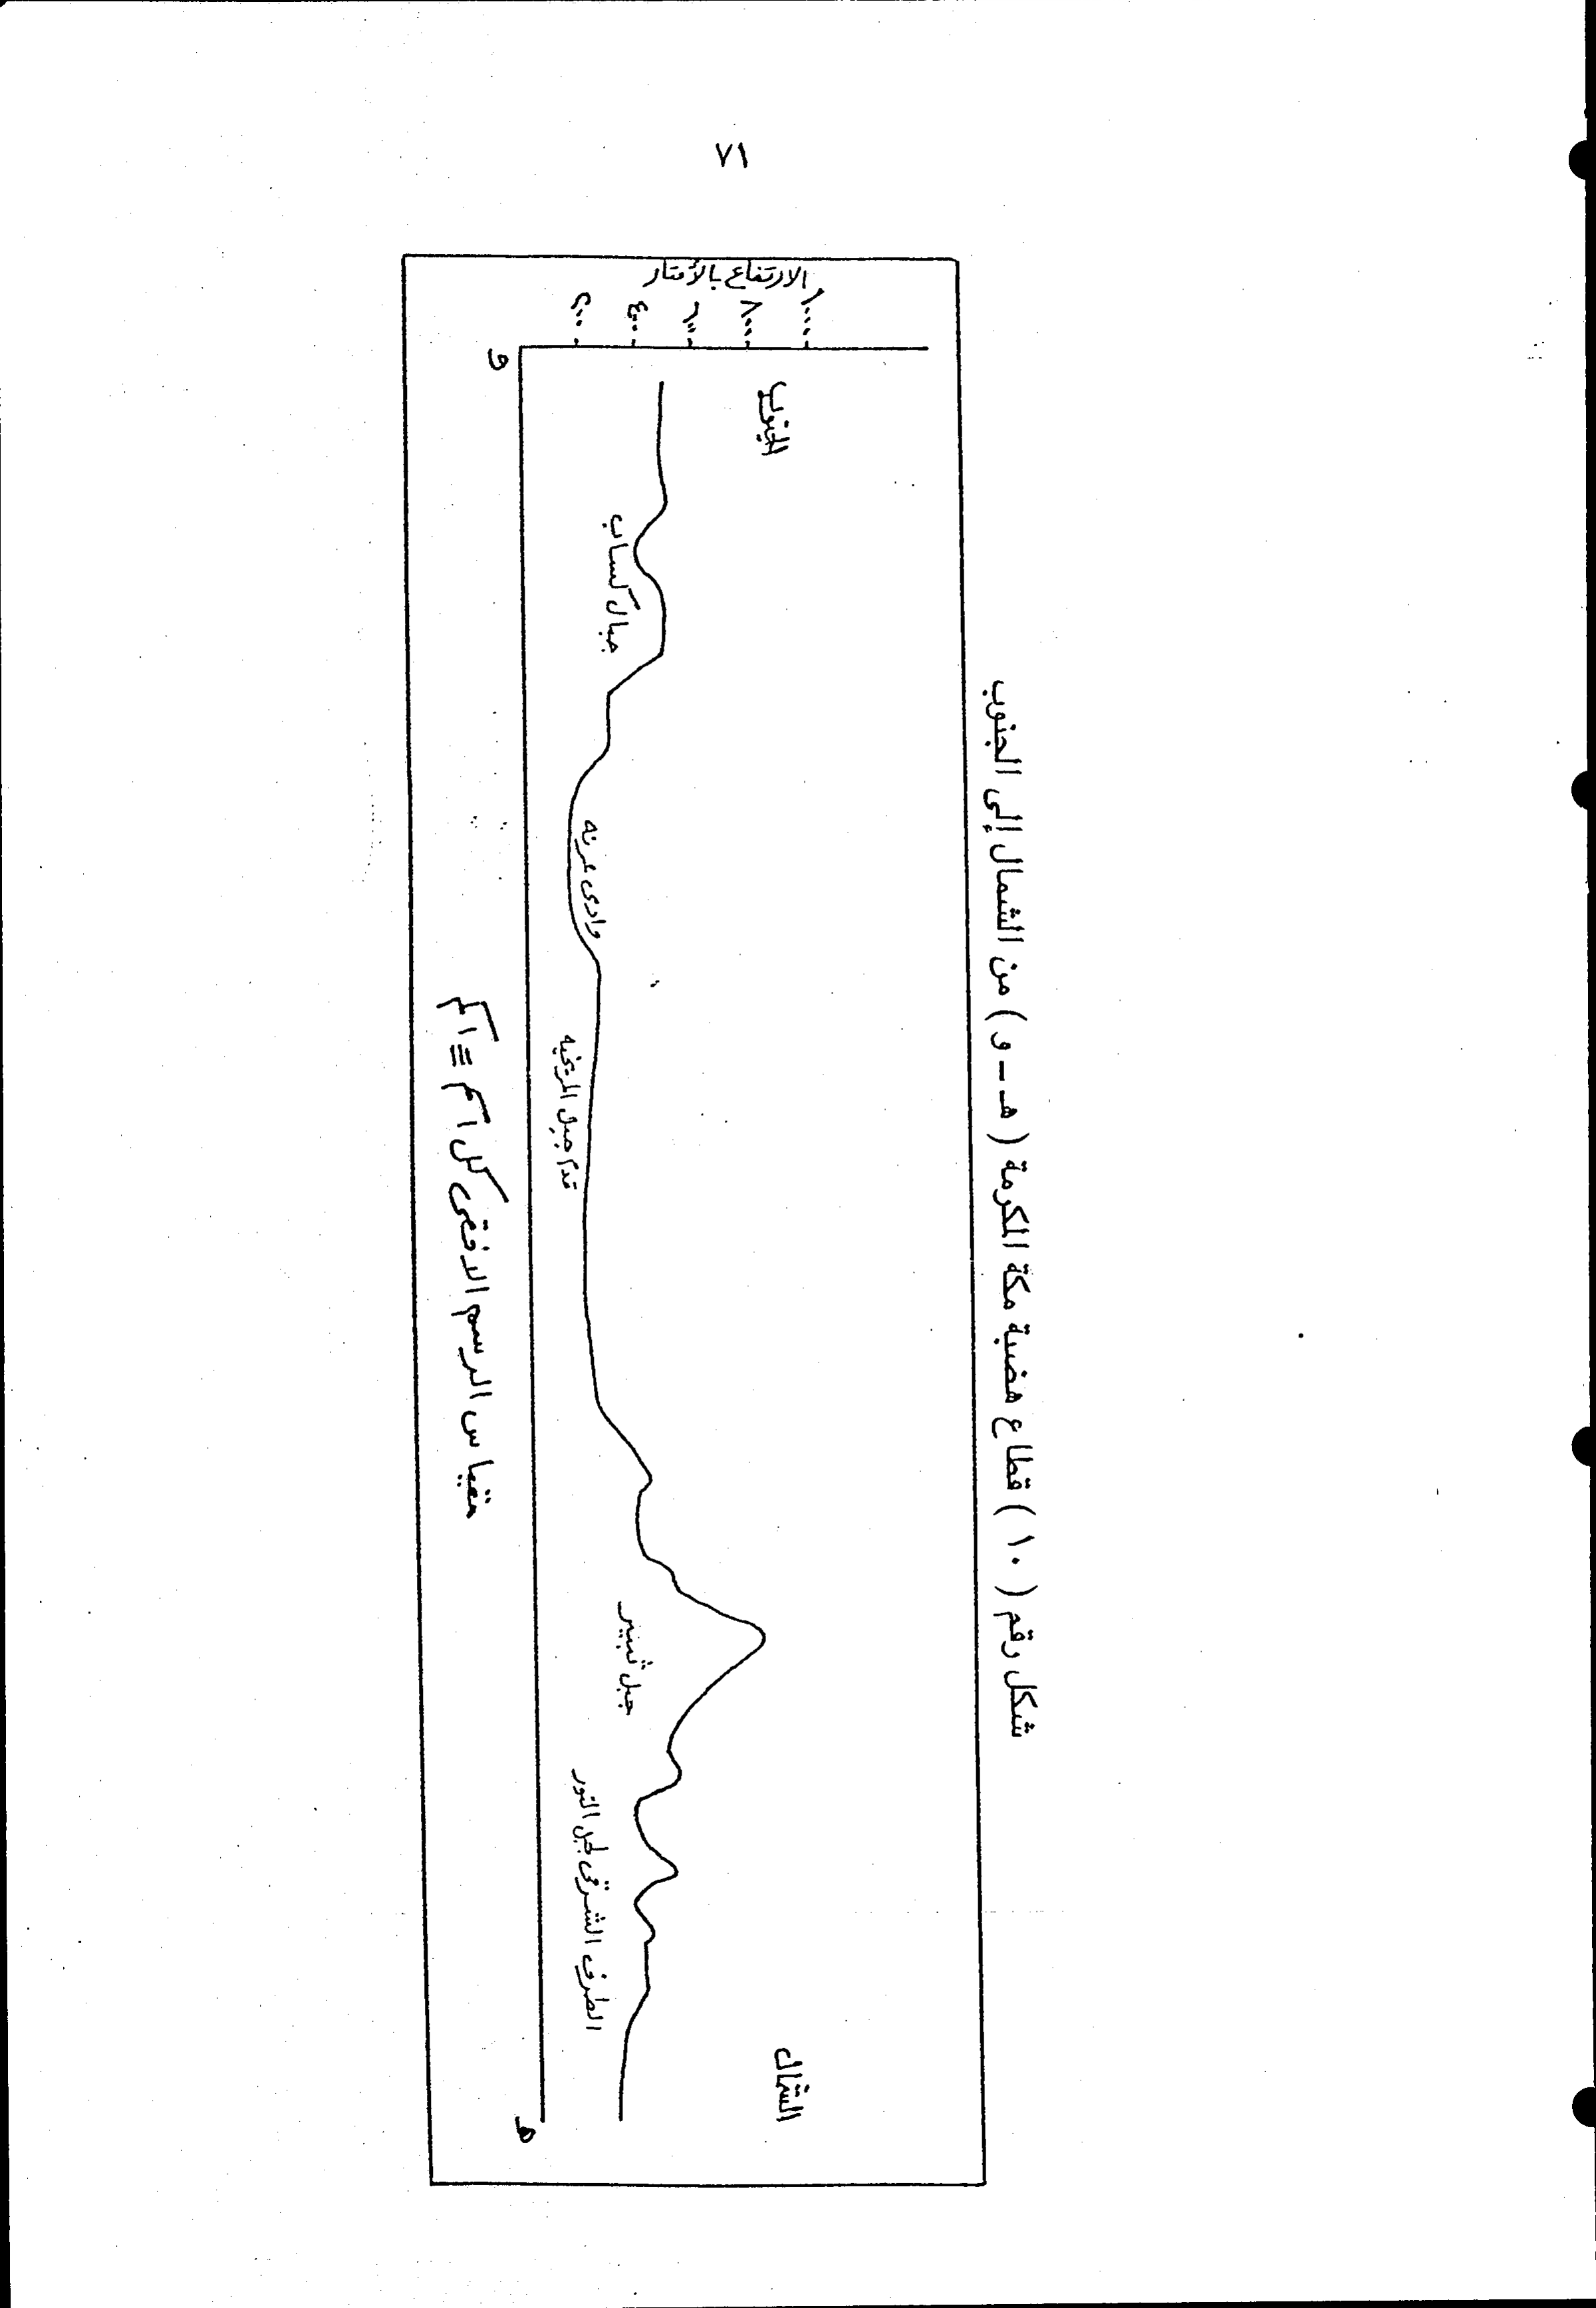 ٧١
شكل رقم ( ١٠ ) قطاع هضبة مكة المكرمة ( هـ ـ و ) من الشمال إلى الجنوب
الارتفاع بالأمتار
١٠٠٠
٨٠٠
٦٠٠
٤٠٠
٢٠٠
الجنوب
الشمال
جبال كساب
وادى عرنه
قدم جبل المريخيه
جبل ثبير
الطرف الشرقى لجبل النور
و
هـ
مقياس الرسم الافقى كل ١سم = ١كم